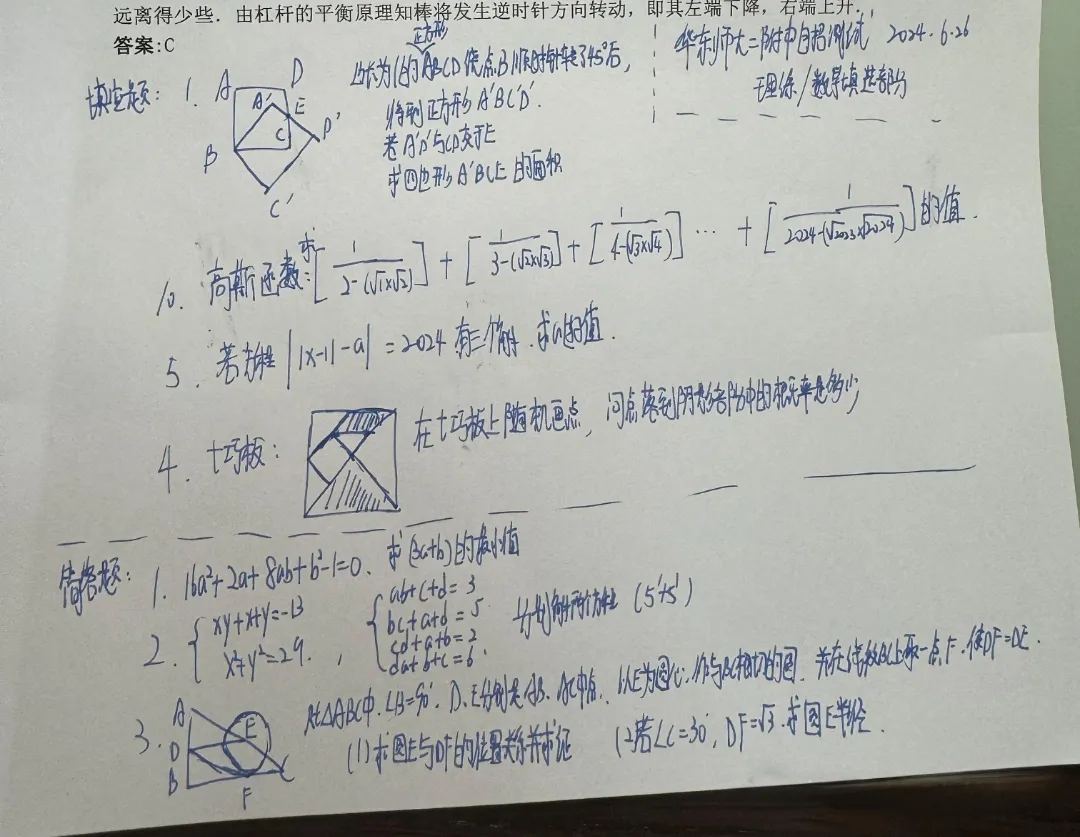 远离得少些．由杠杆的平衡原理知棒将发生逆时针方向转动，即其左端下降，右端上升．
答案:C
华东师大二附中自招测试 2024.6.26
理综/数学填选部分
填空题：
1.
A D A' E D' B C C'
正方形
边长为1的ABCD绕点B顺时针转了45°后，
得到正方形A'BC'D'.
若A'D'与CD交于E
求四边形A'BCE的面积
10. 高斯函数：求[1/(2-(√1×√2))] + [1/(3-(√2×√3))] + [1/(4-(√3×√4))] … + [1/(2024-(√2023×√2024))]的值.
5. 若方程||x-1|-a|=2024有三个解.求a的值.
4. 七巧板：
在七巧板上随机画点，问点落到阴影部分中的概率是多少
简答题：
1. 16a²+2a+8ab+b²-1=0、求(3a+b)的最小值
2. { xy+x+y=-13
x²+y²=29. ,
{ ab+c+d=3
bc+a+d=5
cd+a+b=2
da+b+c=6.
分别解两个方程 (5'+5')
3.
A D B E F C
Rt△ABC中.∠B=90°. D、E分别是AB、AC中点. 以E为圆心.作与BC相切的圆. 并在线段BC上取一点F.使DF=DE.
(1)求圆E与DF的位置关系并求证
(2)若∠C=30°, DF=√3.求圆E半径.